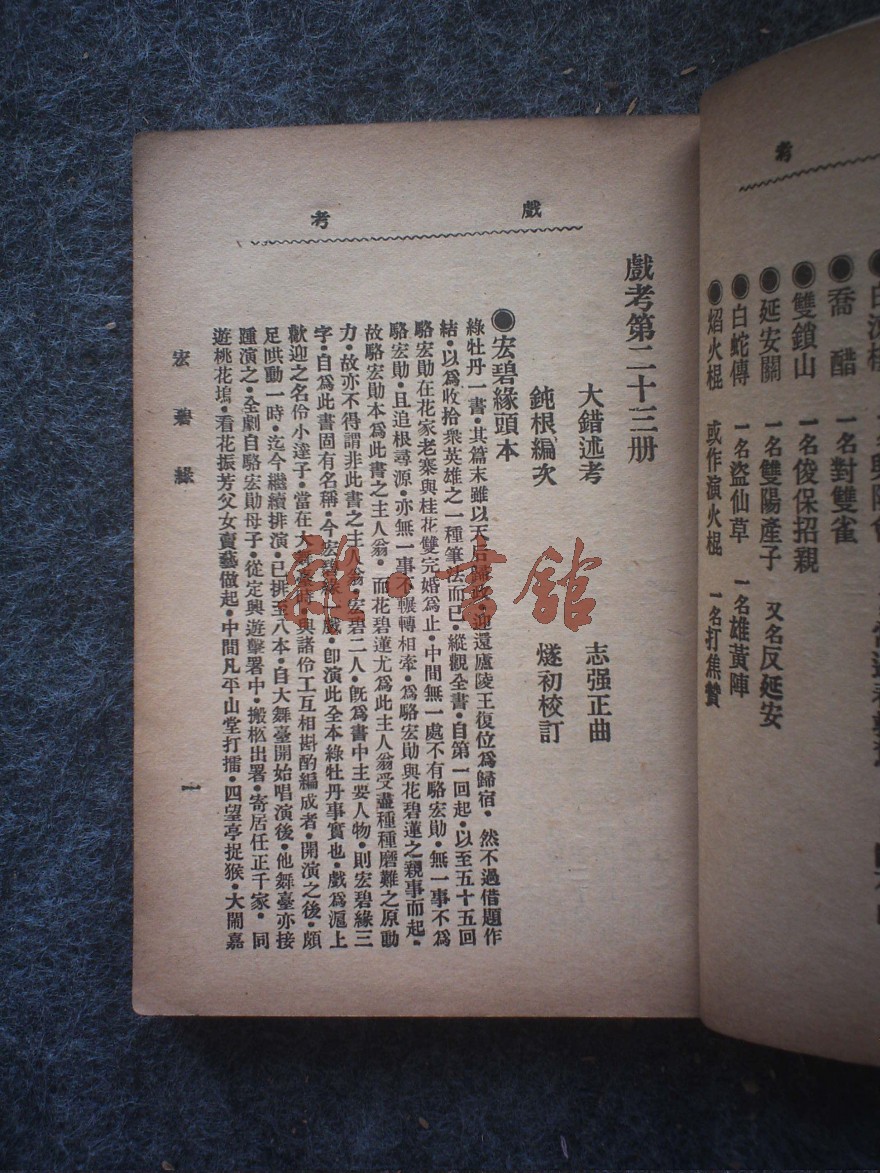 考
白
喬醋 一名對雙雀
雙鎖山 一名俊保招親
延安關 一名雙陽產子 又名反延安
白蛇傳 一名盜仙草 一名雄黃陣
焰火棍 或作演火棍 一名打焦贊
戲考
戲考第二十三册
大錯述考 志强正曲
鈍根編次 燧初校訂
◉宏碧緣頭本
綠牡丹一書•其篇末雖以天后歸政•迎還廬陵王復位爲歸宿•然不過借題作
結•以爲收拾衆英雄之一種筆法而已•縱觀全書•自第一回起•以至五十五回
駱宏勛在花家老寨與桂花雙完婚爲止•中間無一處不有駱宏勛•無一事不爲
駱宏勛•且追根尋源•亦無一事不輾轉相牽•爲駱宏勛與花碧蓮之親事而起•
故駱宏勛本爲此書之主人翁•而花碧蓮尤爲此主人翁受盡種種磨難之原動
力•故亦不得謂非此書之主人翁•宏碧二人•旣爲書中主要人物•則宏碧緣三
字•自爲此書固有名稱•今宏碧緣一戲•卽演此全本綠牡丹事實也•戲爲滬上
歡迎之名伶小達子•當在大舞臺時•與諸伶工互相斟酌編成者•開演之後•頗
足哄動一時•迄今繼續排演•已排至八本•自大舞臺開始唱演後•他舞臺亦接
踵演之•全劇自駱宏勛母子•從定興遊擊署中•搬柩出署•寄居任正千家•同
遊桃花塢•看花振芳父女賣藝做起•中間凡平山堂打擂•四望亭捉猴•大鬧嘉
宏碧緣
一
雜•書館